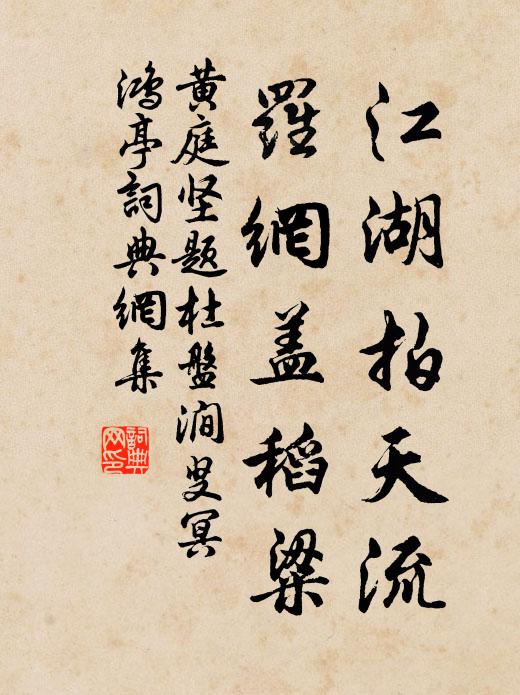 江湖拍天流
羅網蓋稻粱
黄庭坚题杜盤澗叟冥
鴻亭詞典網集
詞典
网印